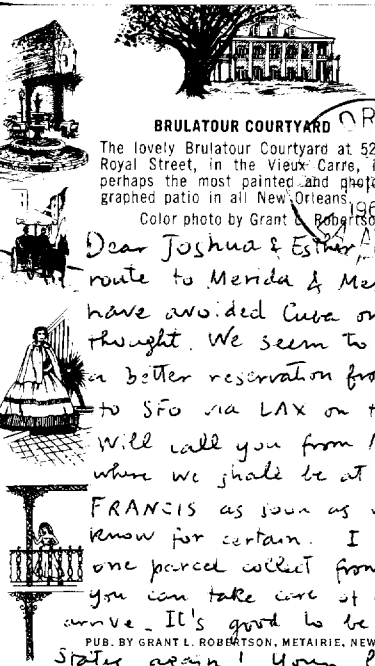 BRULATOUR COURTYARD
The lovely Brulatour Courtyard at 52
Royal Street, in the Vieux Carre, i
perhaps the most painted and photo-
graphed patio in all New Orleans.
Color photo by Grant L. Robertso
OR
196
Dear Joshua & Esther
route to Merida & Me
have avoided Cuba on
thought. We seem to
a better reservation fro
to SFO via LAX on t
Will call you from
where we shall be at
FRANCIS as soon as
know for certain. I
one parcel collect from
you can take care of
arrive. It's good to be
PUB. BY GRANT L. ROBERTSON, METAIRIE, NEW
States again!